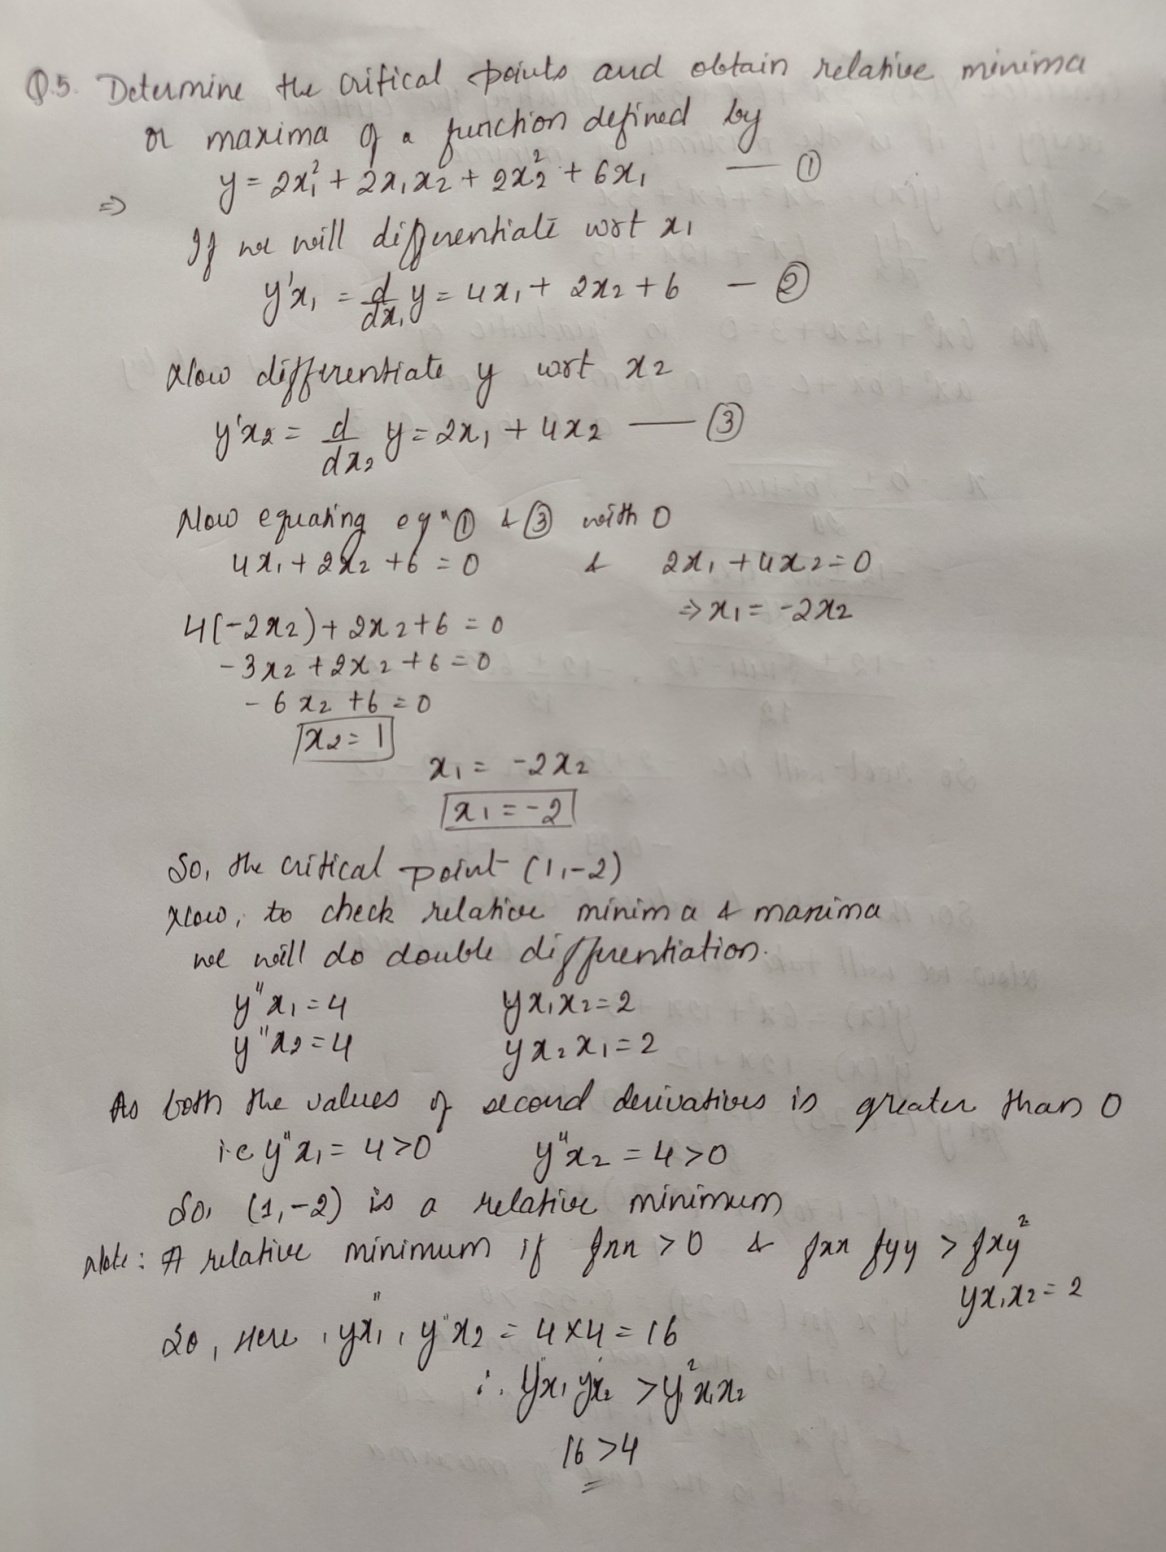 Q.5. Determine the critical points and obtain relative minima
or maxima of a function defined by
y = 2x₁² + 2x₁x₂ + 2x₂² + 6x₁ — ①
⇒
If we will differentiate wrt x₁
y'x₁ = d/dx₁ y = 4x₁ + 2x₂ + 6 — ②
Now differentiate y wrt x₂
y'x₂ = d/dx₂ y = 2x₁ + 4x₂ — ③
Now equating eqⁿ ① & ③ with 0
4x₁ + 2x₂ + 6 = 0 & 2x₁ + 4x₂ = 0
⇒ x₁ = -2x₂
4(-2x₂) + 2x₂ + 6 = 0
-3x₂ + 2x₂ + 6 = 0
-6x₂ + 6 = 0
x₂ = 1
x₁ = -2x₂
x₁ = -2
So, the critical point (1,-2)
Now, to check relative minima & maxima
we will do double differentiation.
y"x₁ = 4 yx₁x₂ = 2
y"x₂ = 4 yx₂x₁ = 2
As both the values of second derivatives is greater than 0
i.e y"x₁ = 4 > 0 y"x₂ = 4 > 0
So, (1,-2) is a relative minimum
Note: A relative minimum if fxx > 0 & fxx fyy > fxy²
yx₁x₂ = 2
So, Here, y"x₁, y"x₂ = 4×4 = 16
∴ y"x₁ y"x₂ > y²x₁x₂
16 > 4